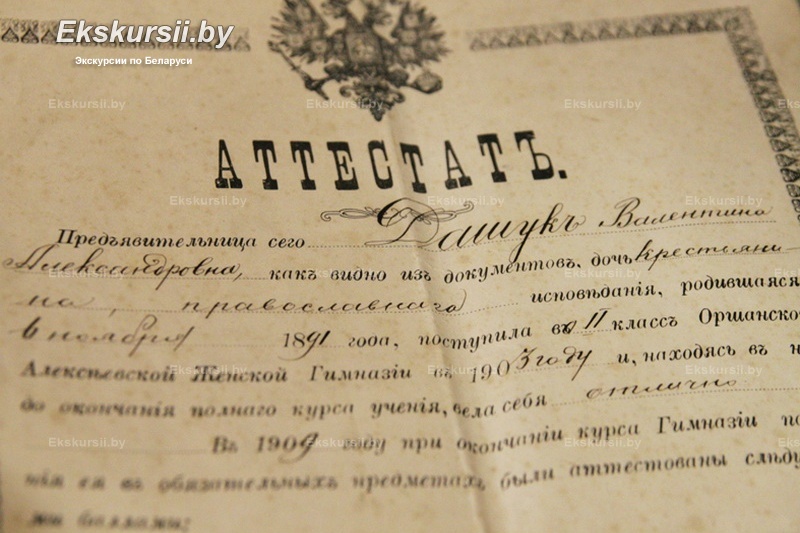 Ekskursii.by
Экскурсии по Беларуси
АТТЕСТАТЪ.
Предъявительница сего Дашукъ Валентина
Александровна, какъ видно изъ документовъ, дочь крестьяни-
на, православнаго исповѣданія, родившаяся
6 ноября 1891 года, поступила въ II классъ Оршанско
Алексѣевской Женской Гимназіи въ 1903 году и, находясь въ н
до окончанія полнаго курса ученія, вела себя отлично
Въ 1909 году при окончаніи курса Гимназіи по
нія ея въ обязательныхъ предметахъ, были аттестованы слѣду
ми баллами: